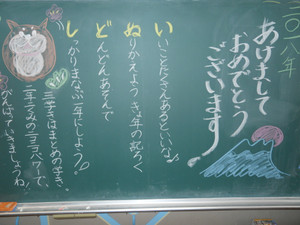 二〇一八年
あけまして
おめでとう
ございます
いいことたくさんあるといいな♪
ぬりかえよう きょ年の記ろく
どんどんあそんで
しっかりまなぶ一年にしよう♪
三学きはまとめの学き。
二年２くみのニコニコパワーで、
がんばっていきましょうね！